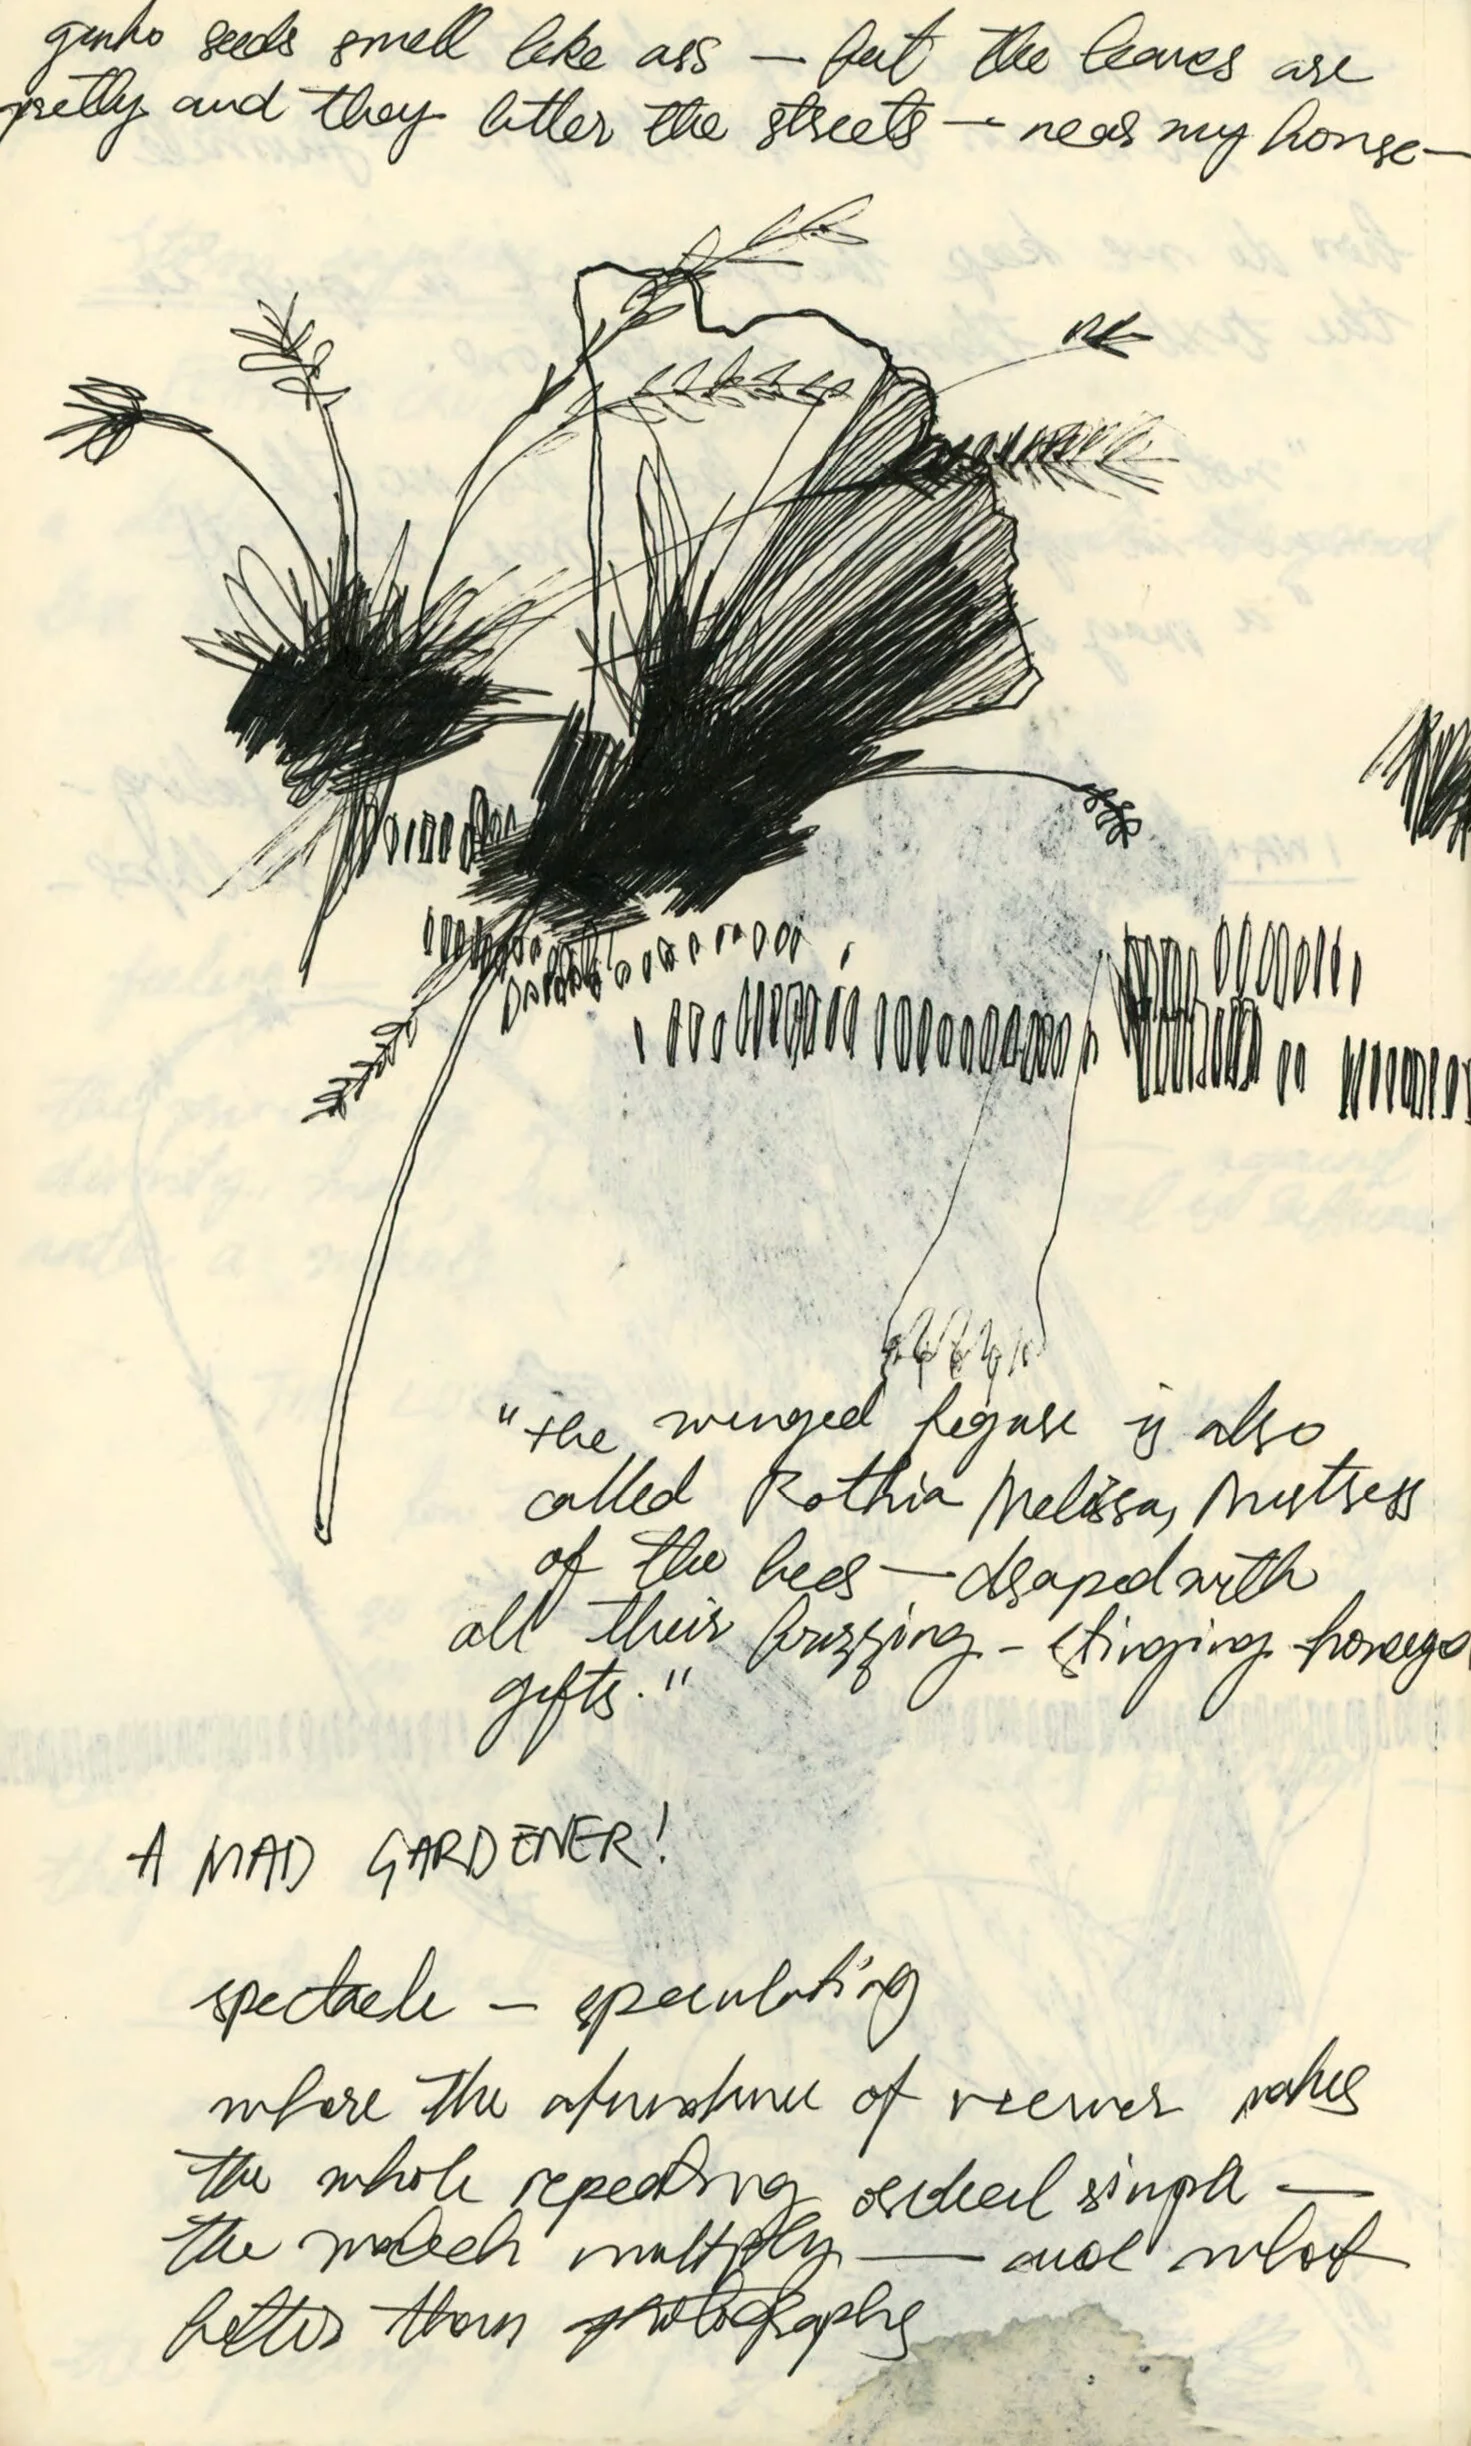 ginko seeds smell like ass — but the leaves are
pretty and they litter the streets — near my house —
"the winged figure is also
called Rothia Melissa, Mistress
of the bees — draped with
all their buzzing - stinging honeyed
gifts."
A MAD GARDENER!
spectacle — speculating
where the abundance of viewer makes
the whole repeating ordeal simple —
the multiply — and what
better than photographs